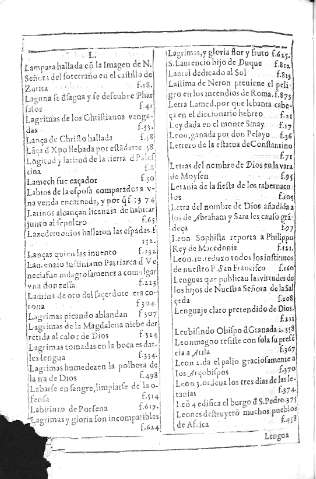 L.
Lampara hallada en la Imagen de N.
Señora del soterraño en el castillo de
Zorita f.18.
Laguna se desagua y se descubre Phar
salos f.41
Lagrimas de los Christianos venga-
das f.53.
Lança de Christo hallada f.58
f.38
Lamech fue caçador f.30
Labios de la esposa comparados a v-
na venda encarnada, y por
Latinos alcançan licencia de habitar
junto al sepulcro f.65
hallaron las espadas f.
132.
Lanças quien las inuento f.132
Laurencio Iustiniano Patriarca de Ve
necia fue milagrosamente a comulgar
vna donzella f.223
Lamina de oro del sacerdote era co-
rona f.304
Lagrimas picando ablandan f.307
Lagrimas de la Magdalena nieue der
retida al calor de Dios f.325
Lagrimas tomadas en la boca es dar-
les lengua f.334.
Lagrimas humedecen la poluora de
la ira de Dios f.498
Labarse en sangre, limpiarse de la o-
fensa f.514
Labirinto de Porsena f.617.
Lagrimas y gloria son incompatibles
f.624
Lagrimas, y gloria flor y fruto f.625.
S. Laurencio hijo de Duque f.802
Laurel dedicado al Sol f.815
Lastima de Neron preuiene el peli-
gro en los incendios de Roma. f.875
Letra Lamed, por que lebanta cabe-
ça en el diccionario hebreo f.21
Ley dada en el monte Sinay f.27
Leon, ganada por don Pelayo f.36
Letrero de la estatua de Constantino
f.71
Letras del nombre de Dios en la vara
de Moysen f.95
Letania de la fiesta de los tabernacu-
los f.205
Letra del nombre de Dios añadida a
los de Abraham y Sara les caso gra-
deça 207
Leon Sophista reporta a Philippo
Rey de Macedonia f.121.
Leon.10. reduxo todos los institutos
de nuestro P. San Francisco f.160
Lenguas que publican las virtudes de
los hijos de Nuestra Señora de la Sal
ceda f.208
Lenguaje claro pretendido de Dios.
f.222
Leubisindo Obispo de Granada 2.318
Leon magno resiste con sola su presé
cia a Atila f.367
Leon 2. da el palio graciosamente a
los Arçobispos f.370
Leon 3. dedica los tres dias de las le-
tanias f.374.
Leon 4 edifica el burgo de S.Pedro.375
Leones destruyeron muchos pueblos
de Africa f.458
Lengoa